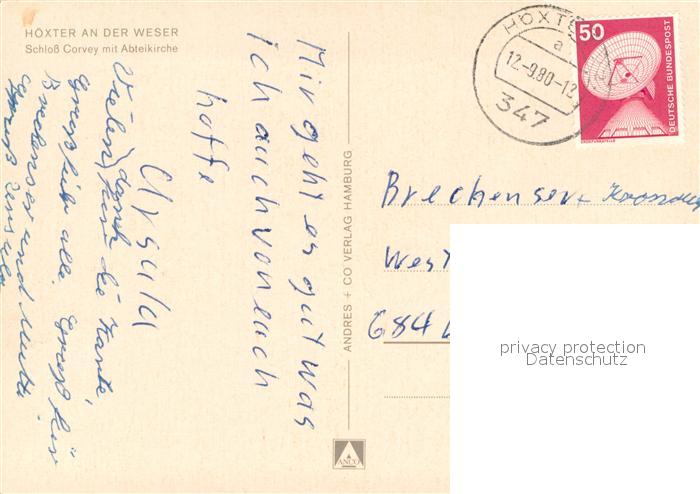 HÖXTER AN DER WESER
Schloß Corvey mit Abteikirche
Mir geht es gut was
ich auch von euch
hoffe
Ursula
Vielen Dank
für die Karte,
Grüsse alle. Gruß
und Mutti.
Gruß Ursula
ANDRES + CO VERLAG HAMBURG
ANCO
HÖXTER
a
12.-9.80-12
347
50
DEUTSCHE BUNDESPOST
West
684
privacy protection
Datenschutz